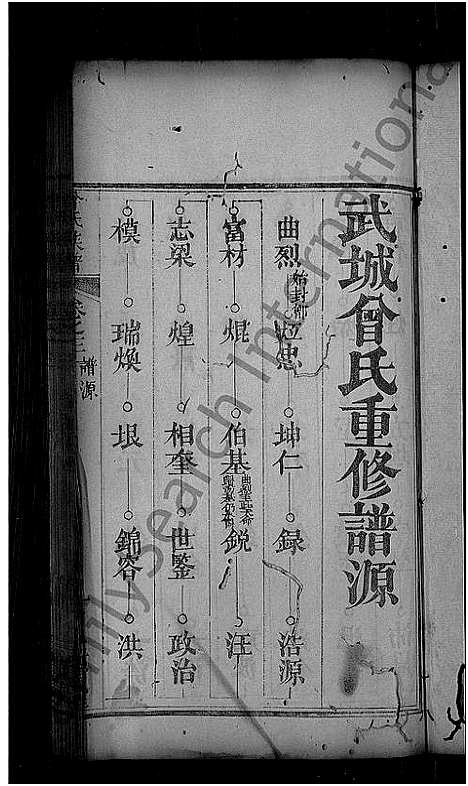 武城曾氏重修譜源
曲烈 始封鄫 忠 坤仁 録 浩源
富材 焜 伯基 鋭 汪
志梁 煌 相奎 世鑒 政治
模 瑞煥 垠 錦容 洪
卷之三 譜源
FamilySearch International